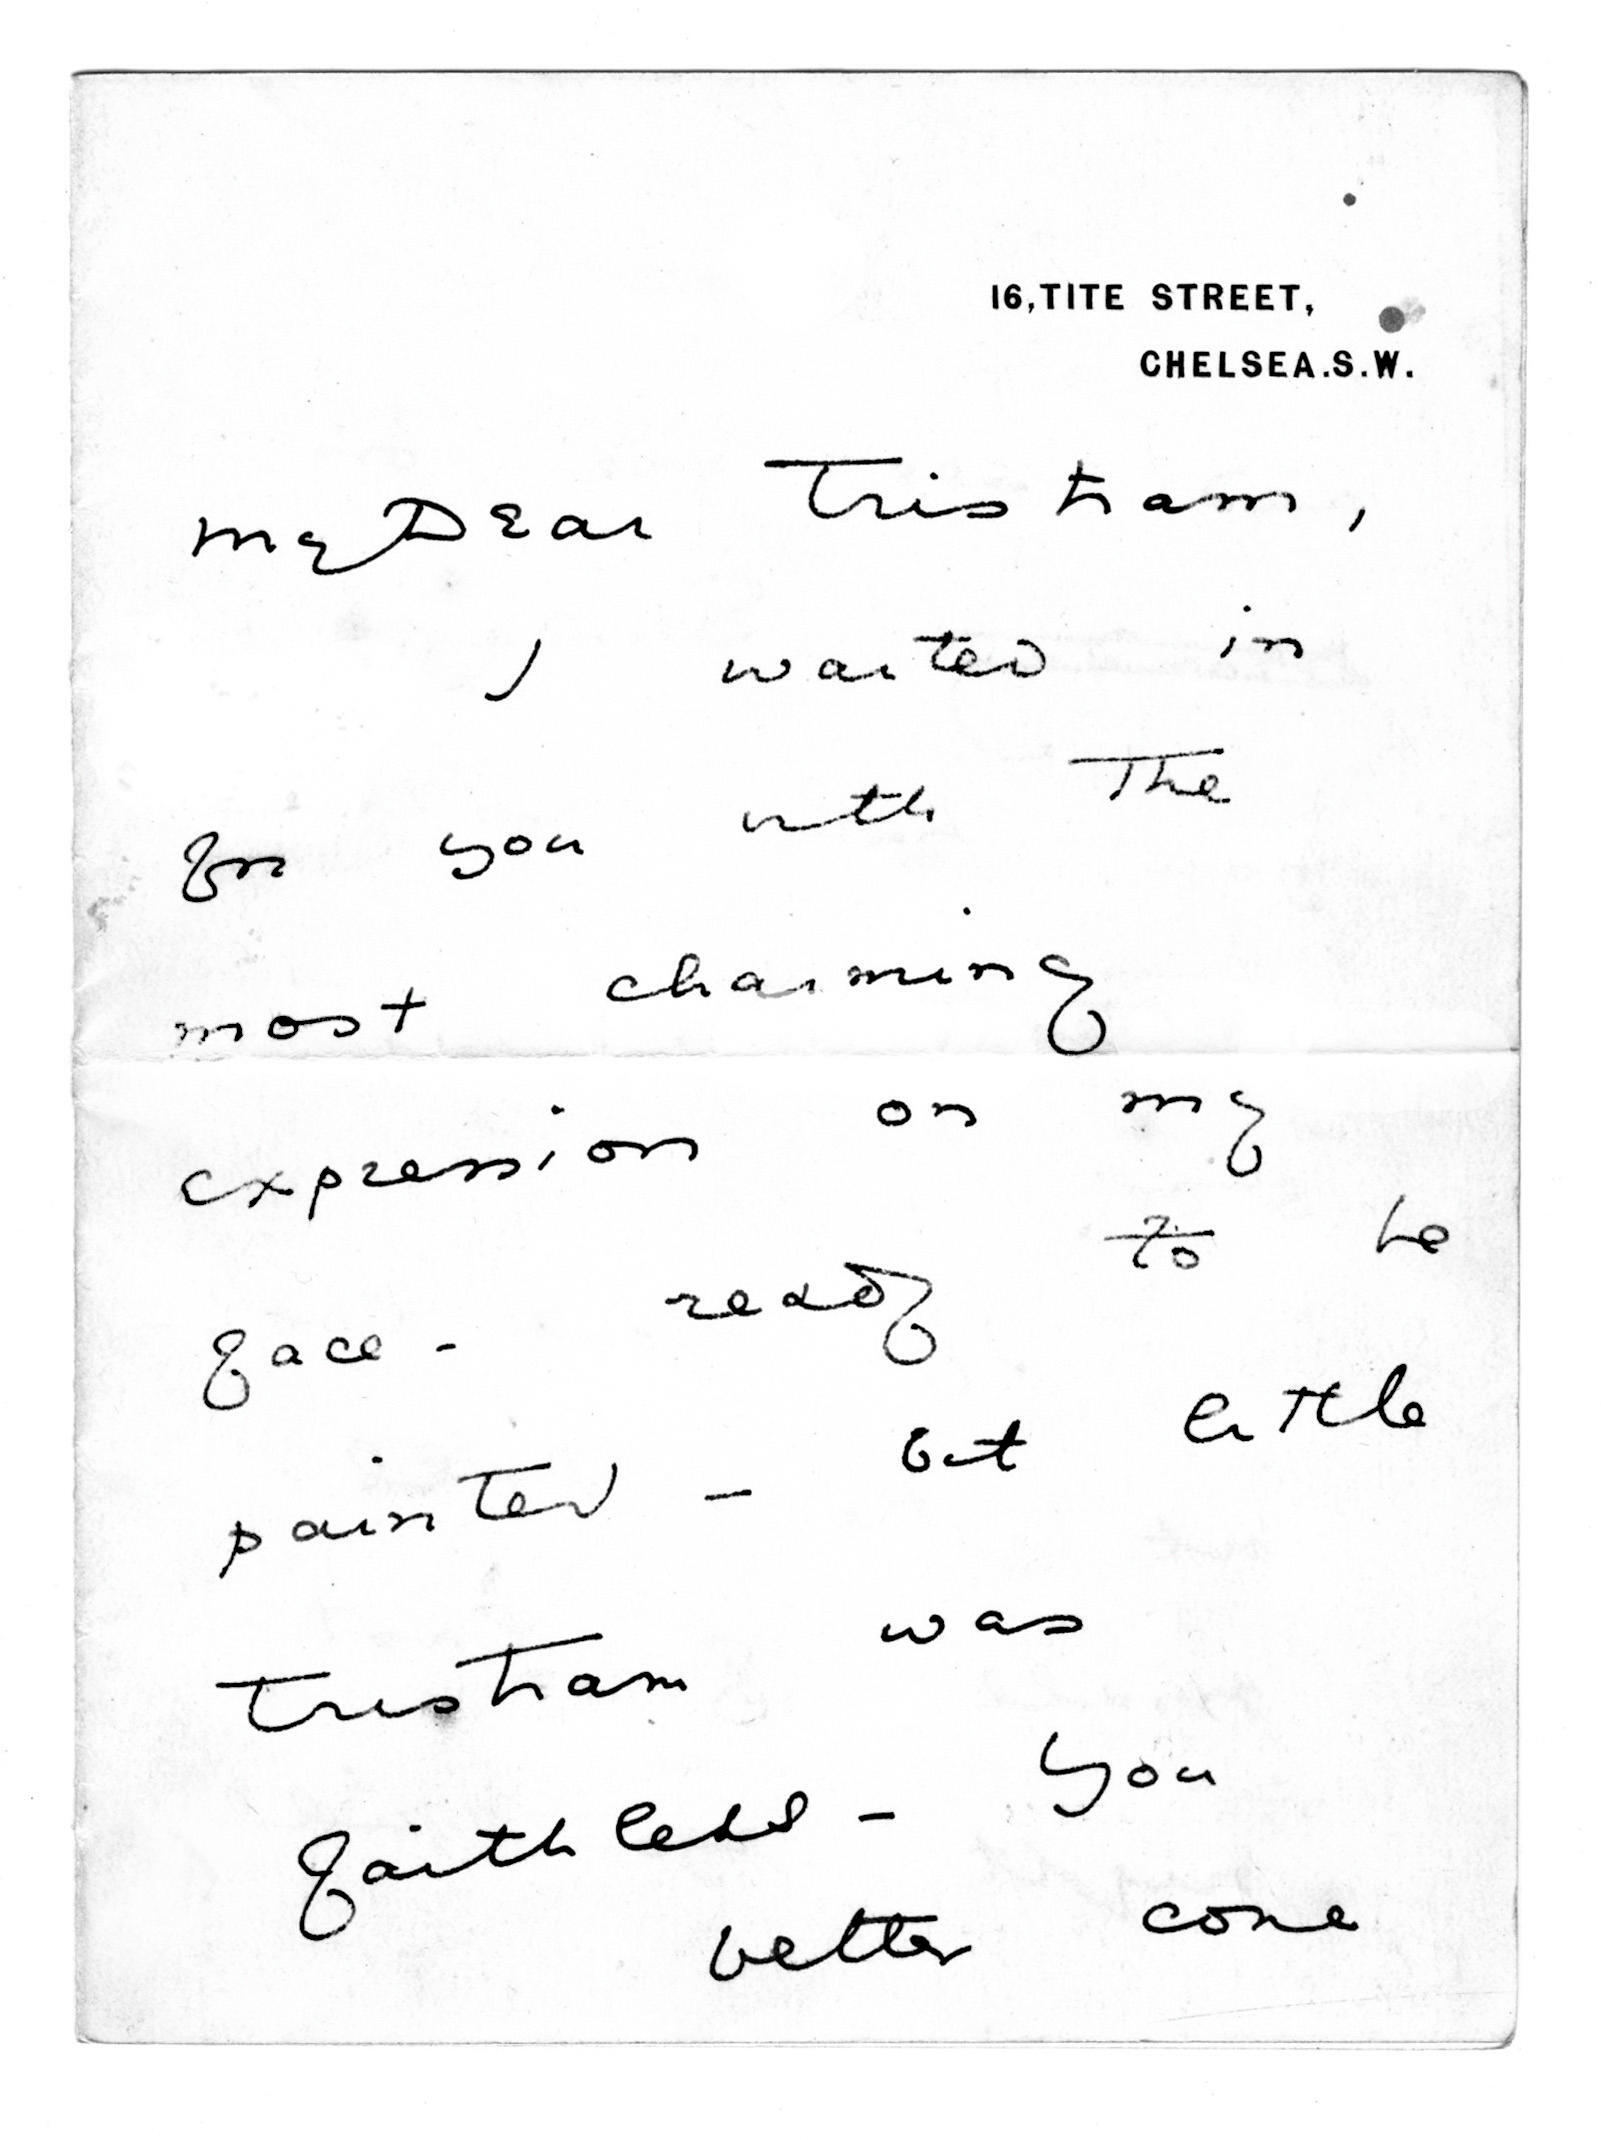 16, TITE STREET,
CHELSEA. S. W.
My Dear Tristram,
I waited in
for you with the
most charming
expression on my
face - ready to be
painted - but little
Tristram was
faithless - you
better come